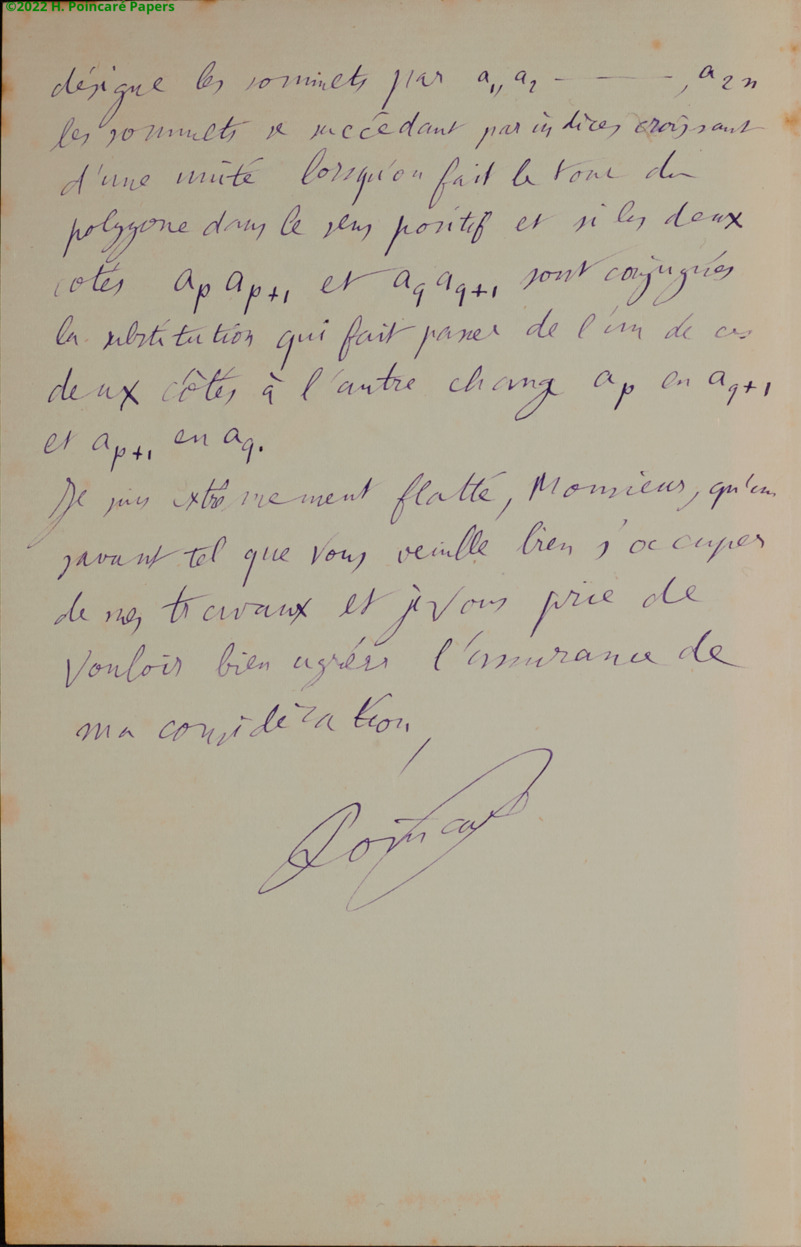 ©2022 H. Poincaré Papers
désigne les sommets par a₁, a₂ - — — , a₂ₙ
les sommets se succédant par indices croissant
d'une unité lorsqu'on fait le tour du
polygone dans le sens positif et si les deux
côtés aₚ aₚ₊₁ et a_q a_q₊₁ sont conjugués
la substitution qui fait passer de l'un de ces
deux côtés à l'autre change aₚ en a_q₊₁
et aₚ₊₁ en a_q.
Je suis extrêmement flatté, Monsieur, qu'un
savant tel que vous veuille bien s'occuper
de mes travaux et je vous prie de
vouloir bien agréer l'assurance de
ma considération,
Poincaré